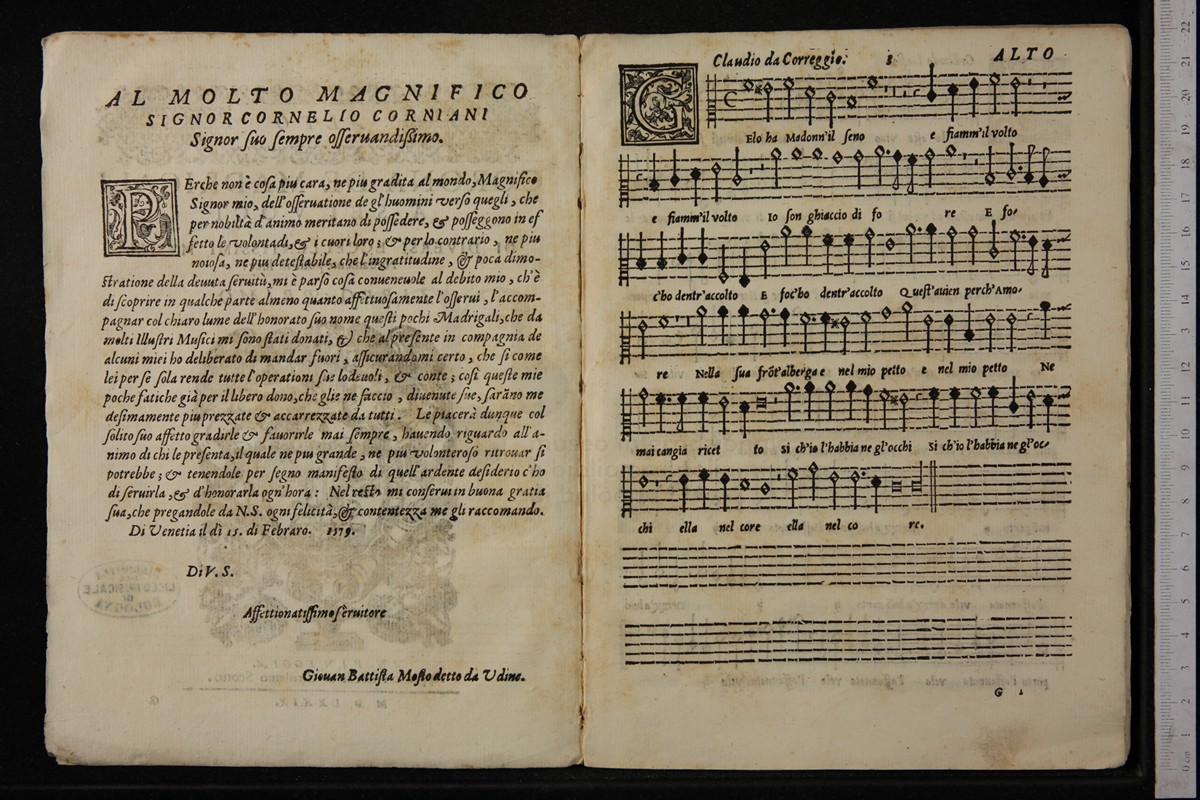 AL MOLTO MAGNIFICO
SIGNOR CORNELIO CORNIANI
Signor ſuo ſempre oſſeruandiſſimo.
PErche non è coſa piu cara, ne piu gradita al mondo, Magnifico
Signor mio, dell'oſſeruatione de gl'huomini verſo quegli, che
per nobiltà d'animo meritano di poſſedere, & poſſeggono in ef
fetto le volontadi, & i cuori loro; & per lo contrario, ne piu
noioſa, ne piu deteſtabile, che l'ingratitudine, & poca dimo-
ſtratione della deuuta ſeruitù, mi è parſo coſa conueneuole al debito mio, ch'è
di ſcoprire in qualche parte almeno quanto affettuoſamente l'oſſerui, l'accom-
pagnar col chiaro lume dell'honorato ſuo nome queſti pochi Madrigali, che da
molti Illuſtri Muſici mi ſono ſtati donati, & che al preſente in compagnia de
alcuni miei ho deliberato di mandar fuori, aſſicurandomi certo, che ſi come
lei per ſe ſola rende tutte l'operationi ſue lodeuoli, & conte; coſi queſte mie
poche fatiche già per il libero dono, che glie ne faccio, diuenute ſue, ſarãno me
deſimamente piu prezzate & accarrezzate da tutti. Le piacerà dunque col
ſolito ſuo affetto gradirle & fauorirle mai ſempre, hauendo riguardo all'a-
nimo di chi le preſenta, il quale ne piu grande, ne piu volonteroſo ritrouar ſi
potrebbe; & tenendole per ſegno manifeſto di quell'ardente deſiderio c'ho
di ſeruirla, & d'honorarla ogn'hora: Nel reſto mi conſerui in buona gratia
ſua, che pregandole da N.S. ogni felicità, & contentezza me gli raccomando.
Di Venetia il dì 15. di Febraro. 1579.
Di V. S.
Affettionatiſſimo ſeruitore
Giouan Battiſta Moſto detto da Vdine.
LICEO MUSICALE
DI
BOLOGNA
Claudio da Correggio. 3 ALTO
GElo ha Madonn'il ſeno e fiamm'il volto
e fiamm'il volto Io ſon ghiaccio di fo re E fo-
c'ho dentr'accolto E foc'ho dentr'accolto Queſt'auien perch'Amo-
re Nella ſua frõt'alberga e nel mio petto e nel mio petto Ne
mai cangia ricet to Si ch'io l'habbia ne gl'occhi Si ch'io l'habbia ne gl'oc-
chi ella nel core ella nel co re.
G 1